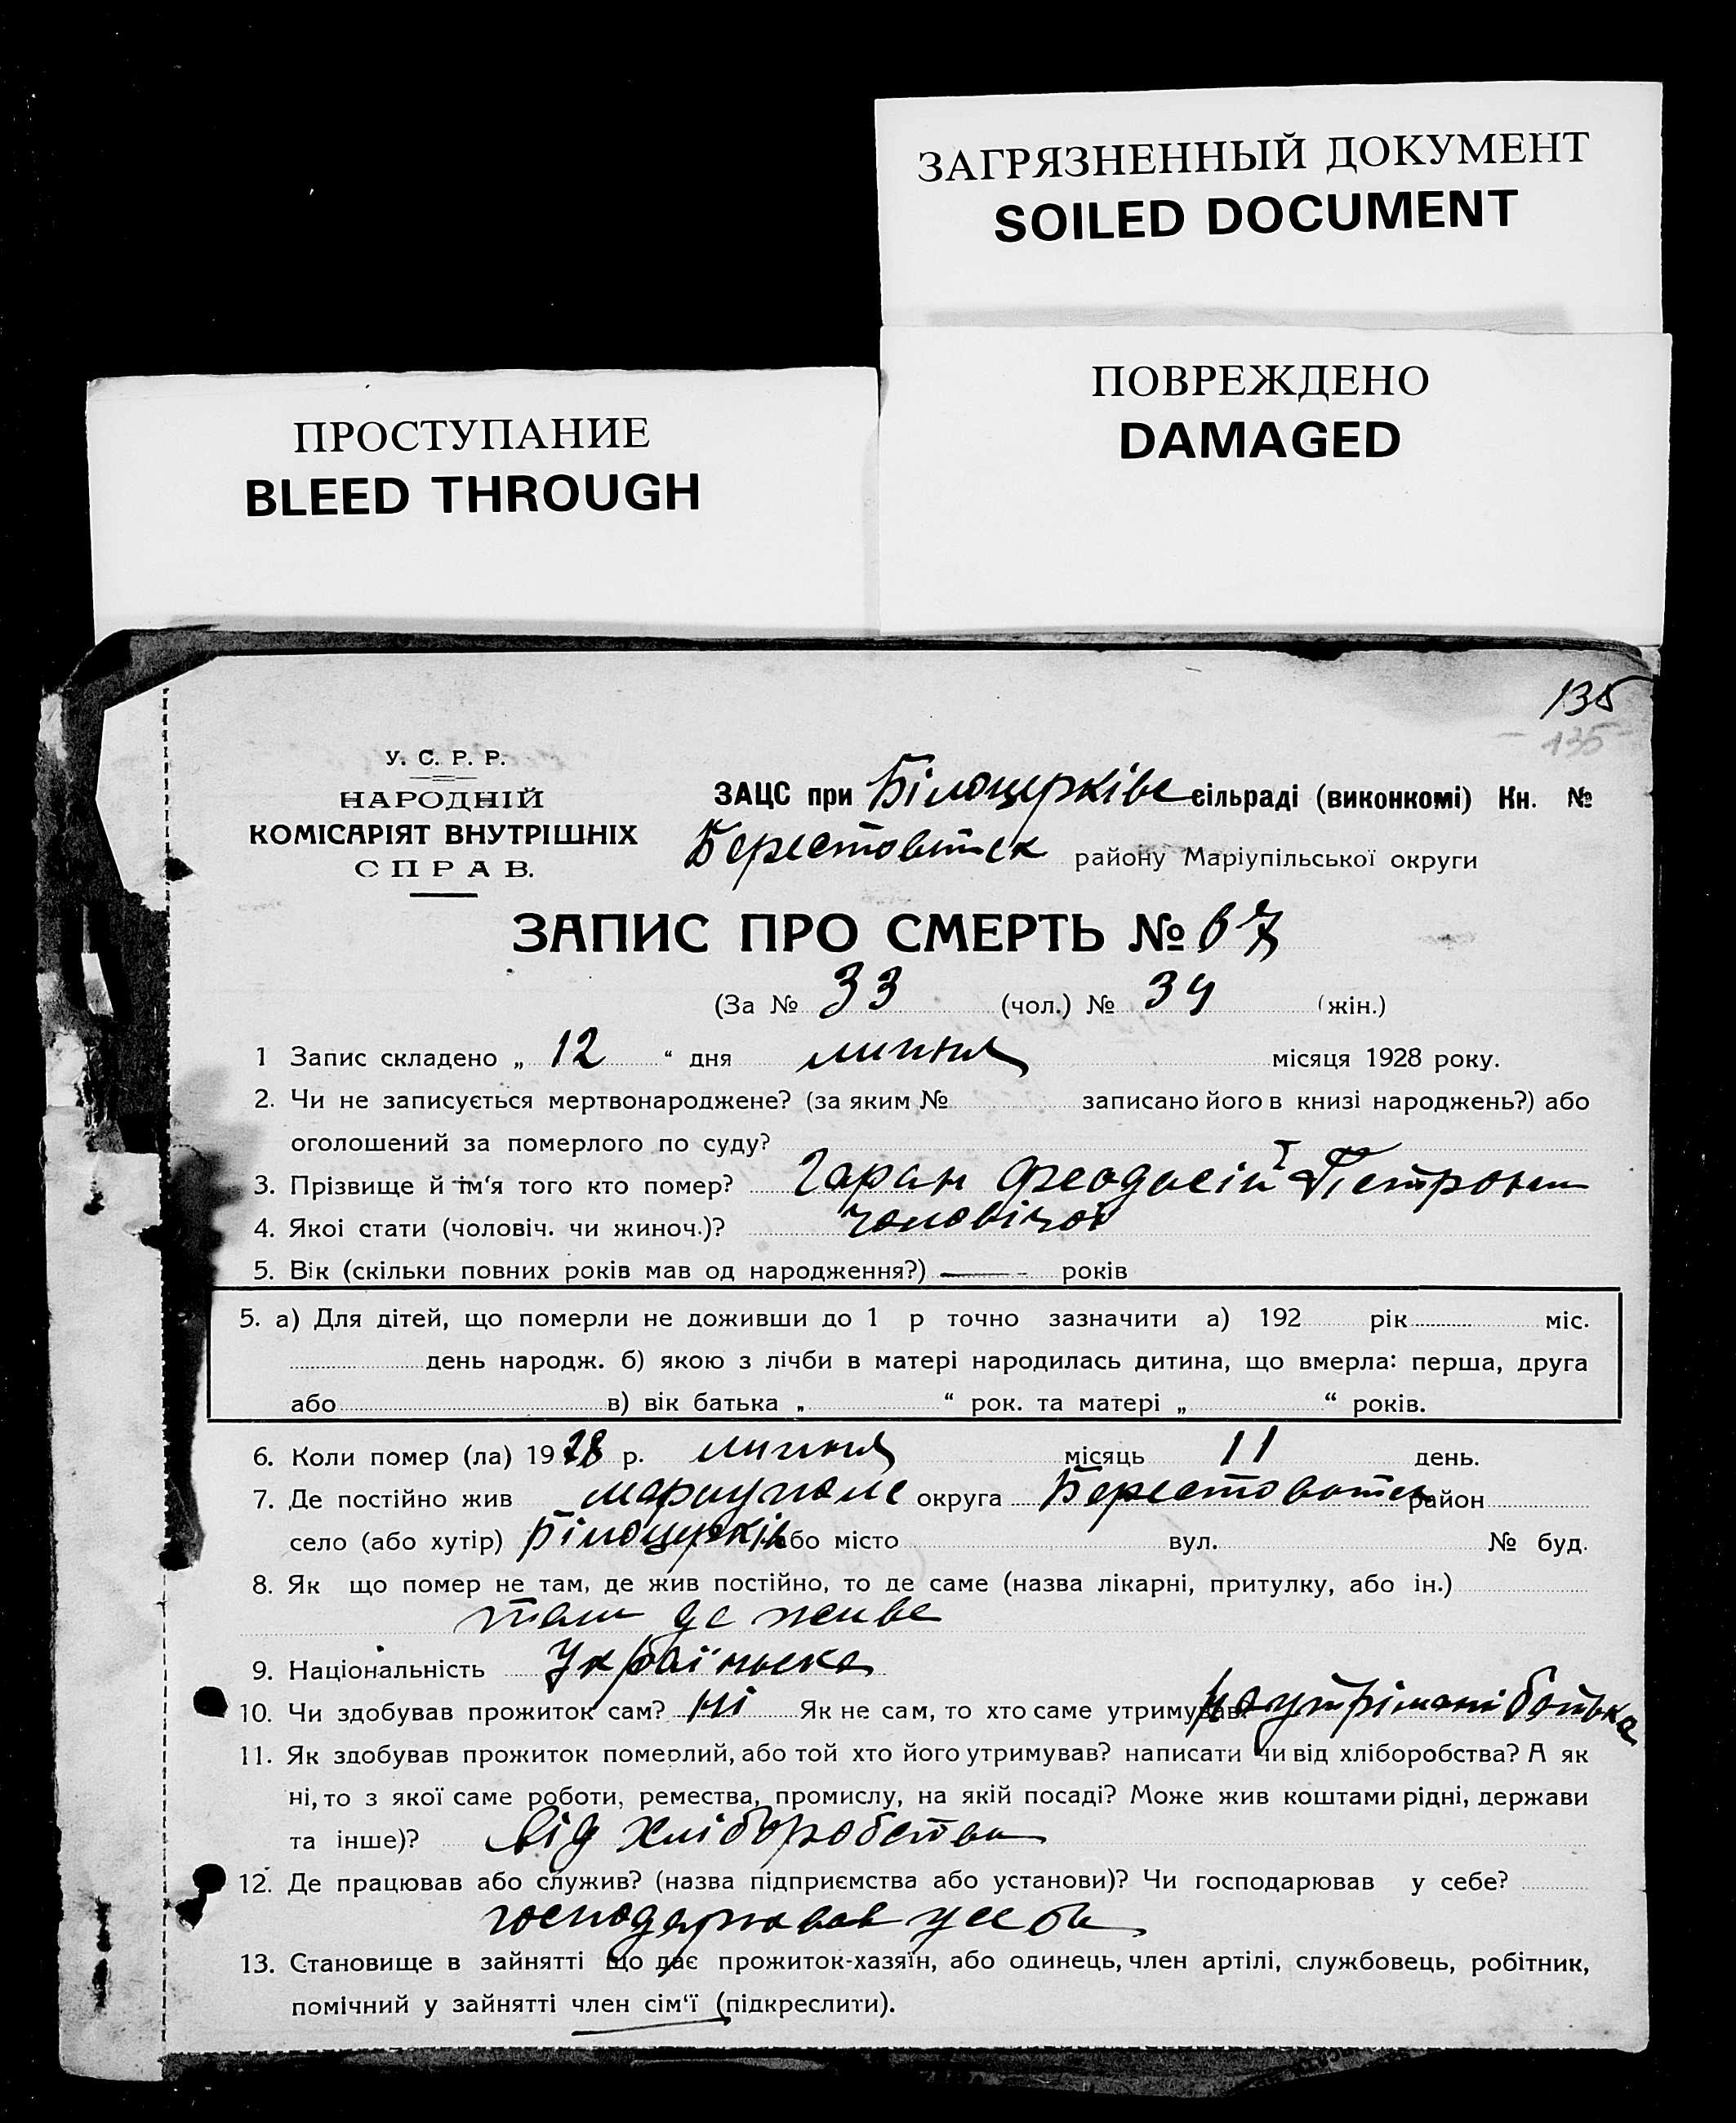 ЗАГРЯЗНЕННЫЙ ДОКУМЕНТ
SOILED DOCUMENT
ПОВРЕЖДЕНО
DAMAGED
ПРОСТУПАНИЕ
BLEED THROUGH
135
135
У. С. Р. Р.
НАРОДНІЙ
КОМІСАРІЯТ ВНУТРІШНІХ
СПРАВ.
ЗАЦС при Білоцерківс сільраді (виконкомі) Кн. №
Берестовитск району Маріупільської округи
ЗАПИС ПРО СМЕРТЬ № 67
(За № 33 (чол.) № 34 (жін.)
1 Запис складено „ 12 “ дня липня місяця 1928 року.
2. Чи не записується мертвонароджене? (за яким № записано його в книзі народжень?) або
оголошений за померлого по суду?
3. Прізвище й ім‘я того кто помер? Гаран Феодосій Петрович
4. Якоі стати (чоловіч. чи жиноч.)? чоловічої
5. Вік (скільки повних років мав од народження?) — - років
5. а) Для дітей, що померли не доживши до 1 р точно зазначити а) 192 рік міс.
день народж. б) якою з лічби в матері народилась дитина, що вмерла: перша, друга
або в) вік батька „ “ рок. та матері „ “ років.
6. Коли помер (ла) 1928 р. липня місяць 11 день.
7. Де постійно жив Мариупольс округа Берестоватск район
село (або хутір) Білоцерків або місто вул. № буд.
8. Як що помер не там, де жив постійно, то де саме (назва лікарні, притулку, або ін.)
там де живе
9. Національність Українська
10. Чи здобував прожиток сам? ні Як не сам, то хто саме утримував на утрімані батька
11. Як здобував прожиток померлий, або той хто його утримував? написати чи від хліборобства? А як
ні, то з якої саме роботи, ремества, промислу, на якій посаді? Може жив коштами рідні, держави
та інше)? від хліборобства
12. Де працював або служив? (назва підприємства або установи)? Чи господарював у себе?
господарював у себе
13. Становище в зайнятті що дає прожиток-хазяїн, або одинець, член артілі, службовець, робітник,
помічний у зайнятті член сім‘ї (підкреслити).